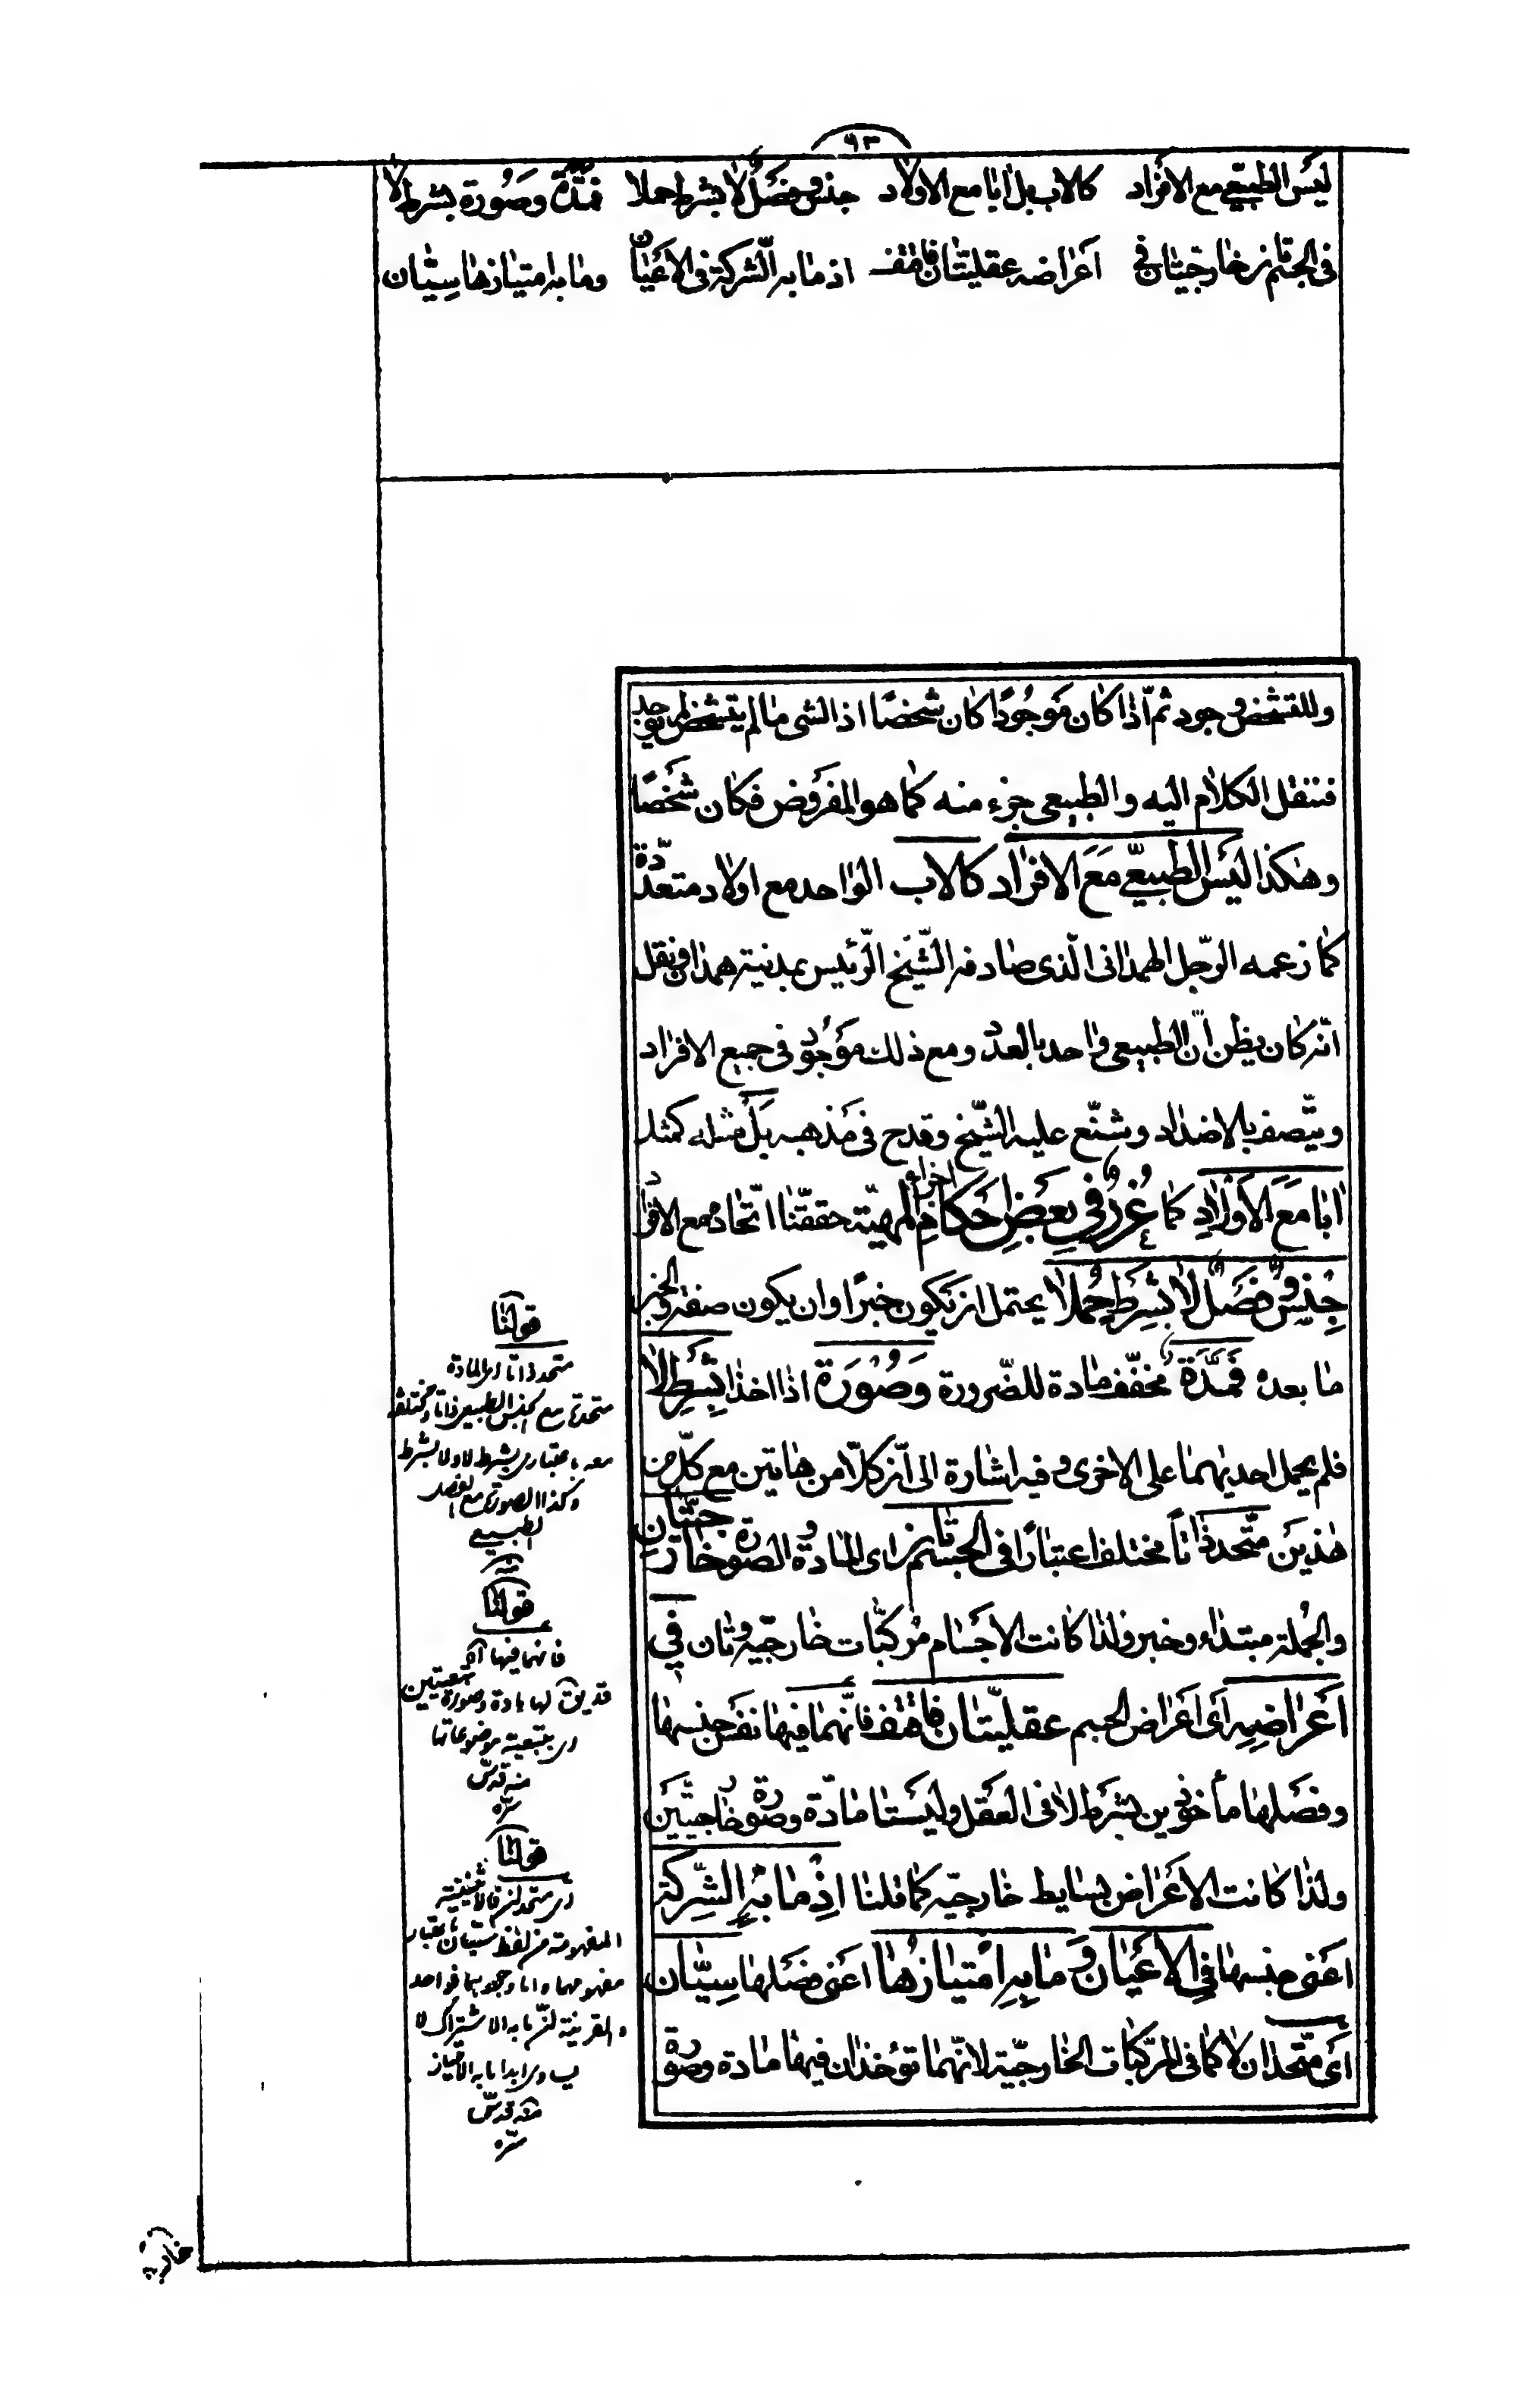 ٩٣
ليس الطبيعي مع الافراد كالاب بل ابا مع الاولاد جنس وفصل لا بشرط حملا فمدة وصورة بشرط لا
في الجسم تان خارجيتان في اعراضه عقليتان فاقتف اذ ما به الشركة في الاعيان وما به امتيازها سيتان
وللتشخص وجود ثم اذا كان موجودا كان شخصا اذ الشى ما لم يتشخص لم يوجد
فننقل الكلام اليه والطبيعى جزء منه كما هو المفروض فكان شخصا
وهكذا ليس الطبيعي مع الافراد كالاب الواحد مع اولاد متعددة
كما زعمه الرجل الهمدانى الذى صادفه الشيخ الرئيس بمدينة همدان ونقل
انه كان يظن ان الطبيعى واحد بالعدد ومع ذلك موجود فى جميع الافراد
ويتصف بالاضداد وشنع عليه الشيخ وقدح فى مذهبه بل مثله كمثل
ابا مع الاولاد كما غرر في بعض احكام اجزاء المهية حققنا اتحاده مع الافراد
جنس وفصل لا بشرط حملا يحتمل ان يكون خبرا وان يكون صفة والخبر
ما بعده فمدة مخفف مادة للضرورة وصورة اذا اخذا بشرط لا
فلم يحمل احديهما على الاخرى وفيه اشارة الى ان كلا من هاتين مع كل من
هذين متحد ذاتا مختلف اعتبارا فى الجسم تان اى المادة والصورة خارجيتان
والجملة مبتداء وخبر ولذا كانت الاجسام مركبات خارجية وتان في
اعراضه اى اعراض الجسم عقليتان فاقتف فانهما فيها نفس جنسها
وفصلها مأخوذين بشرط لا فى العقل وليستا مادة وصورة خارجيتين
ولذا كانت الاعراض بسايط خارجية كما قلنا اذ ما به الشركة
اعنى جنسها في الاعيان وما به امتيازها اعنى فصلها سيتان
اى متحدان لا كما فى المركبات الخارجية لانهما تؤخذان فيها مادة وصورة
قولنا
متحد ذاتا اى المادة
متحدة مع الجنس الطبيعى ذاتا ومختلفة
معه باعتبارى بشرط لا ولا بشرط
وكذا الصورة مع الفصل
الطبيعي
منه
قولنا
فانهما فيها آه
قد يق لها مادة وصورة تبعيتين
اى بتبعية موضوعاتها
منه قدس
سره
قولنا
اى متحدان فالاثنينية
المفهومة من لفظ سيتان باعتبار
مفهومهما واما وجودهما فواحد
والقرينة ان ما به الاشتراك لا
يساوى ابدا ما به الامتياز
منه قدس
سره
خارجية